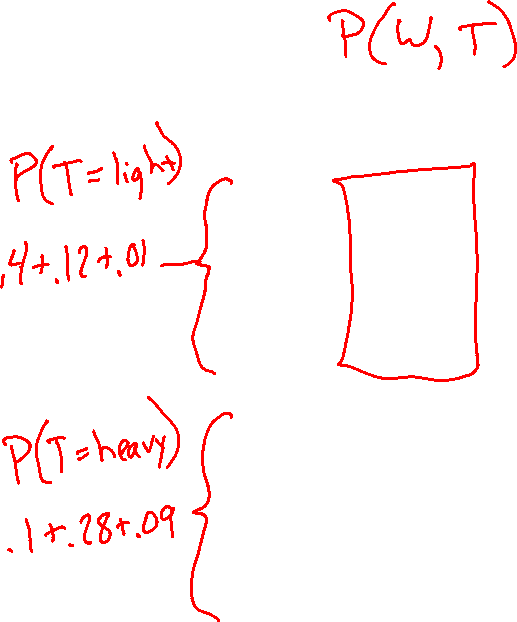 P(W, T)
P(T=light)
.4+.12+.01
P(T=heavy)
.1+.28+.09